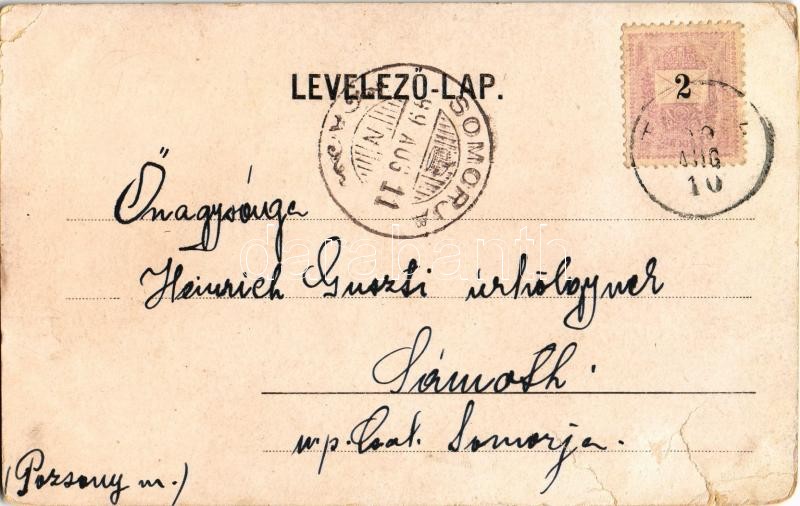 LEVELEZŐ-LAP.
2
SOMORJA
99 AUG 11
N
AUG
10
Őnagysága
Heinrich Guszti úrhölgynek
Sámoth
u.p. Somorja.
(Pozsony m.)
darabanth